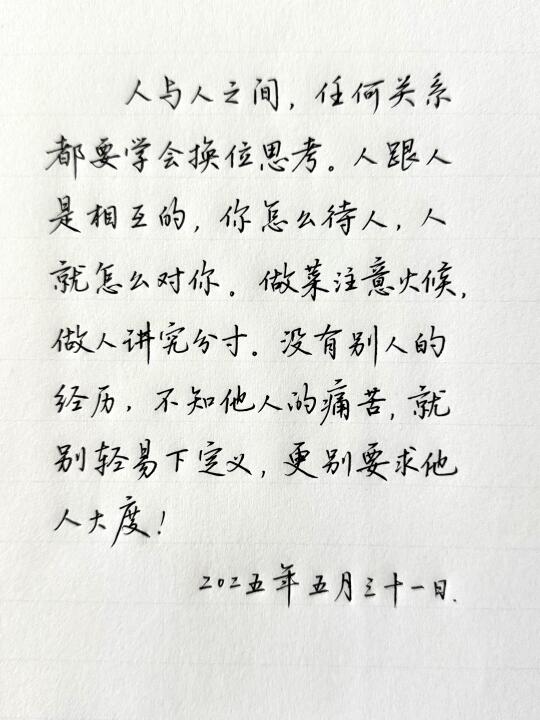 人与人之间，任何关系
都要学会换位思考。人跟人
是相互的，你怎么待人，人
就怎么对你。做菜注意火候，
做人讲究分寸。没有别人的
经历，不知他人的痛苦，就
别轻易下定义，更别要求他
人大度！
2025五年五月三十一日.